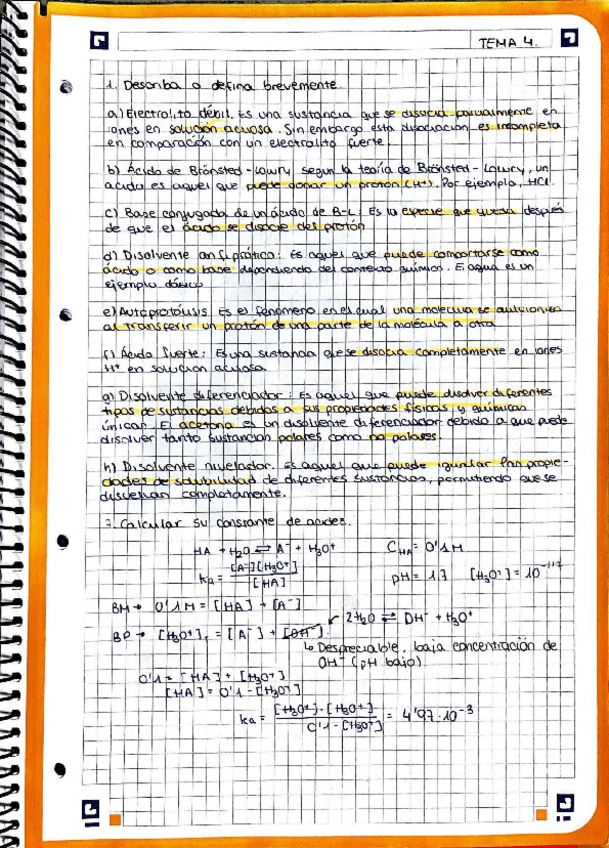 TEMA 4.
1. Describa o defina brevemente.
a) Electrolito débil. Es una sustancia que se disocia parcialmente en
iones en solución acuosa. Sin embargo esta disociación es incompleta
en comparación con un electrolito fuerte.
b) Ácido de Brönsted-Lowry segun la teoría de Brönsted-Lowry, un
acido es aquel que puede donar un protón (H⁺). Por ejemplo, HCl.
c) Base conjugada de un ácido de B-L: Es la especie que queda después
de que el ácido se disocie del protón
d) Disolvente anfiprótico: Es aquel que puede comportarse como
ácido o como base dependiendo del contexto químico. El agua es un
ejemplo clásico
e) Autoprotólisis. Es el fenómeno en el cual una molecula se autoioniza
al transferir un protón de una parte de la molécula a otra
f) Ácido fuerte: Es una sustancia que se disocia completamente en iones
H⁺ en solucion acuosa.
g) Disolvente diferenciador: Es aquel que puede disolver diferentes
tipos de sustancias debidos a sus propiedades físicas y químicas
únicas. El acetona es un disolvente diferenciador debido a que puede
disolver tanto sustancias polares como no polares.
h) Disolvente nivelador. Es aquel que puede igualar las propie-
dades de solubilidad de diferentes sustancias, permitiendo que se
disuelvan completamente.
Calcular su constante de acidez.
HA + H₂O ⇌ A⁻ + H₃O⁺ C_HA = 0'1M
ka = [A⁻][H₃O⁺] / [HA] pH = 1'7 [H₃O⁺] = 10⁻¹'⁷
BM → 0'1M = [HA] + [A⁻]
2H₂O ⇌ OH⁻ + H₃O⁺
BP → [H₃O⁺]_T = [A⁻] + [OH⁻]
↳ Despreciable, baja concentración de
OH⁻ (pH bajo)
0'1 = [HA] + [H₃O⁺]
[HA] = 0'1 - [H₃O⁺]
ka = [H₃O⁺]·[H₃O⁺] / 0'1 - [H₃O⁺] = 4'97·10⁻³